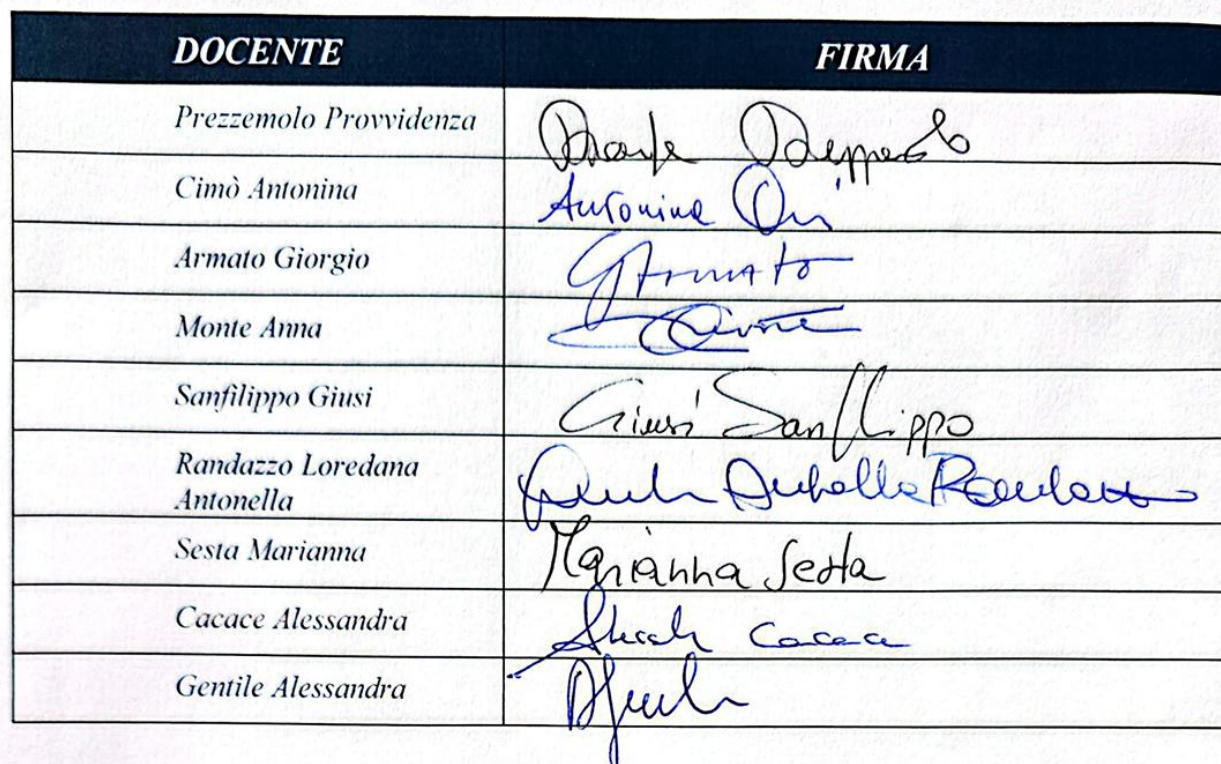 DOCENTE FIRMA
Prezzemolo Provvidenza
Cimò Antonina Antonina
Armato Giorgio GArmato
Monte Anna
Sanfilippo Giusi Giusi Sanfilippo
Randazzo Loredana
Antonella Randazzo
Sesta Marianna Marianna Sesta
Cacace Alessandra Cacace
Gentile Alessandra